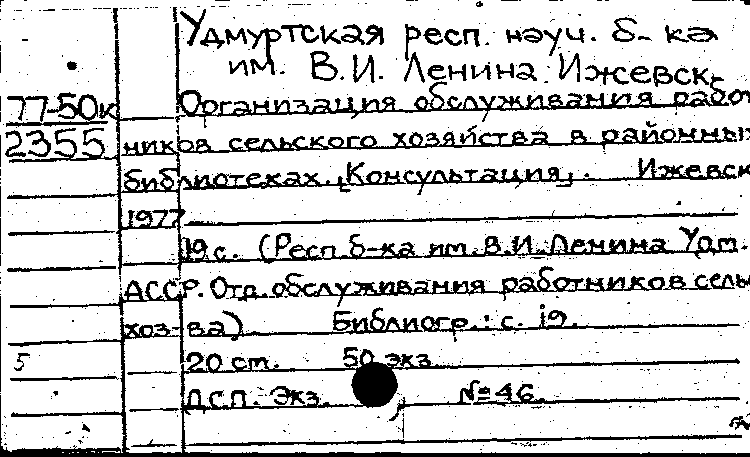 Удмуртская респ. науч. б-ка
им. В.И. Ленина. Ижевск.
77-50к Организация обслуживания работ
2355 ников сельского хозяйства в районных
библиотеках. [Консультация]. Ижевск
1977
19с. (Респ. б-ка им. В.И. Ленина Удм.
АССР. Отд. обслуживания работников сель
хоз-ва). Библиогр.: с. 19.
5 20 cm. 50 экз.
Д.С.П. Экз. №46.